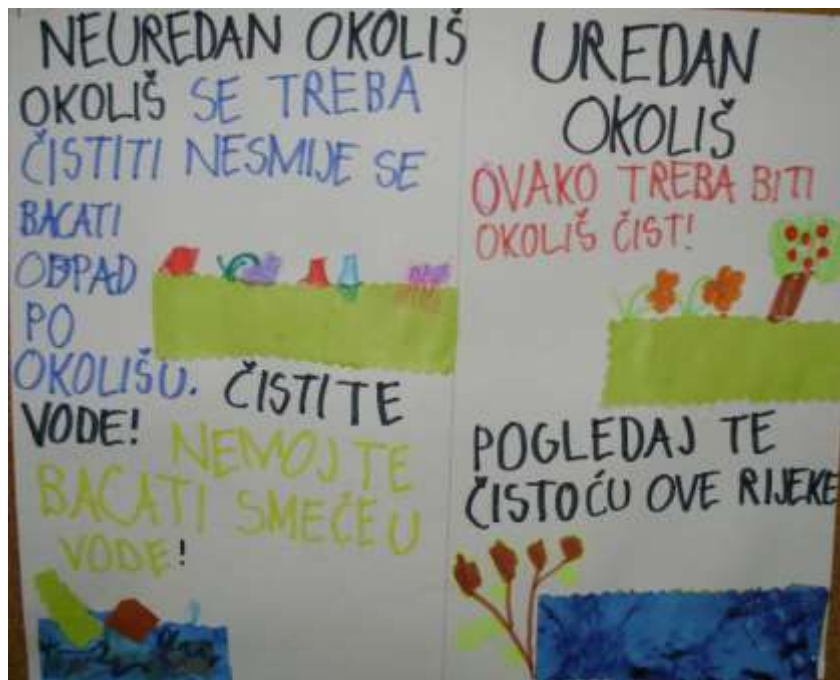 NEUREDAN OKOLIŠ
OKOLIŠ SE TREBA
ČISTITI NESMIJE SE
BACATI
ODPAD
PO
OKOLIŠU. ČISTITE
VODE! NEMOJTE
BACATI SMEĆE U
VODE!
UREDAN
OKOLIŠ
OVAKO TREBA BITI
OKOLIŠ ČIST!
POGLEDAJ TE
ČISTOĆU OVE RIJEKE